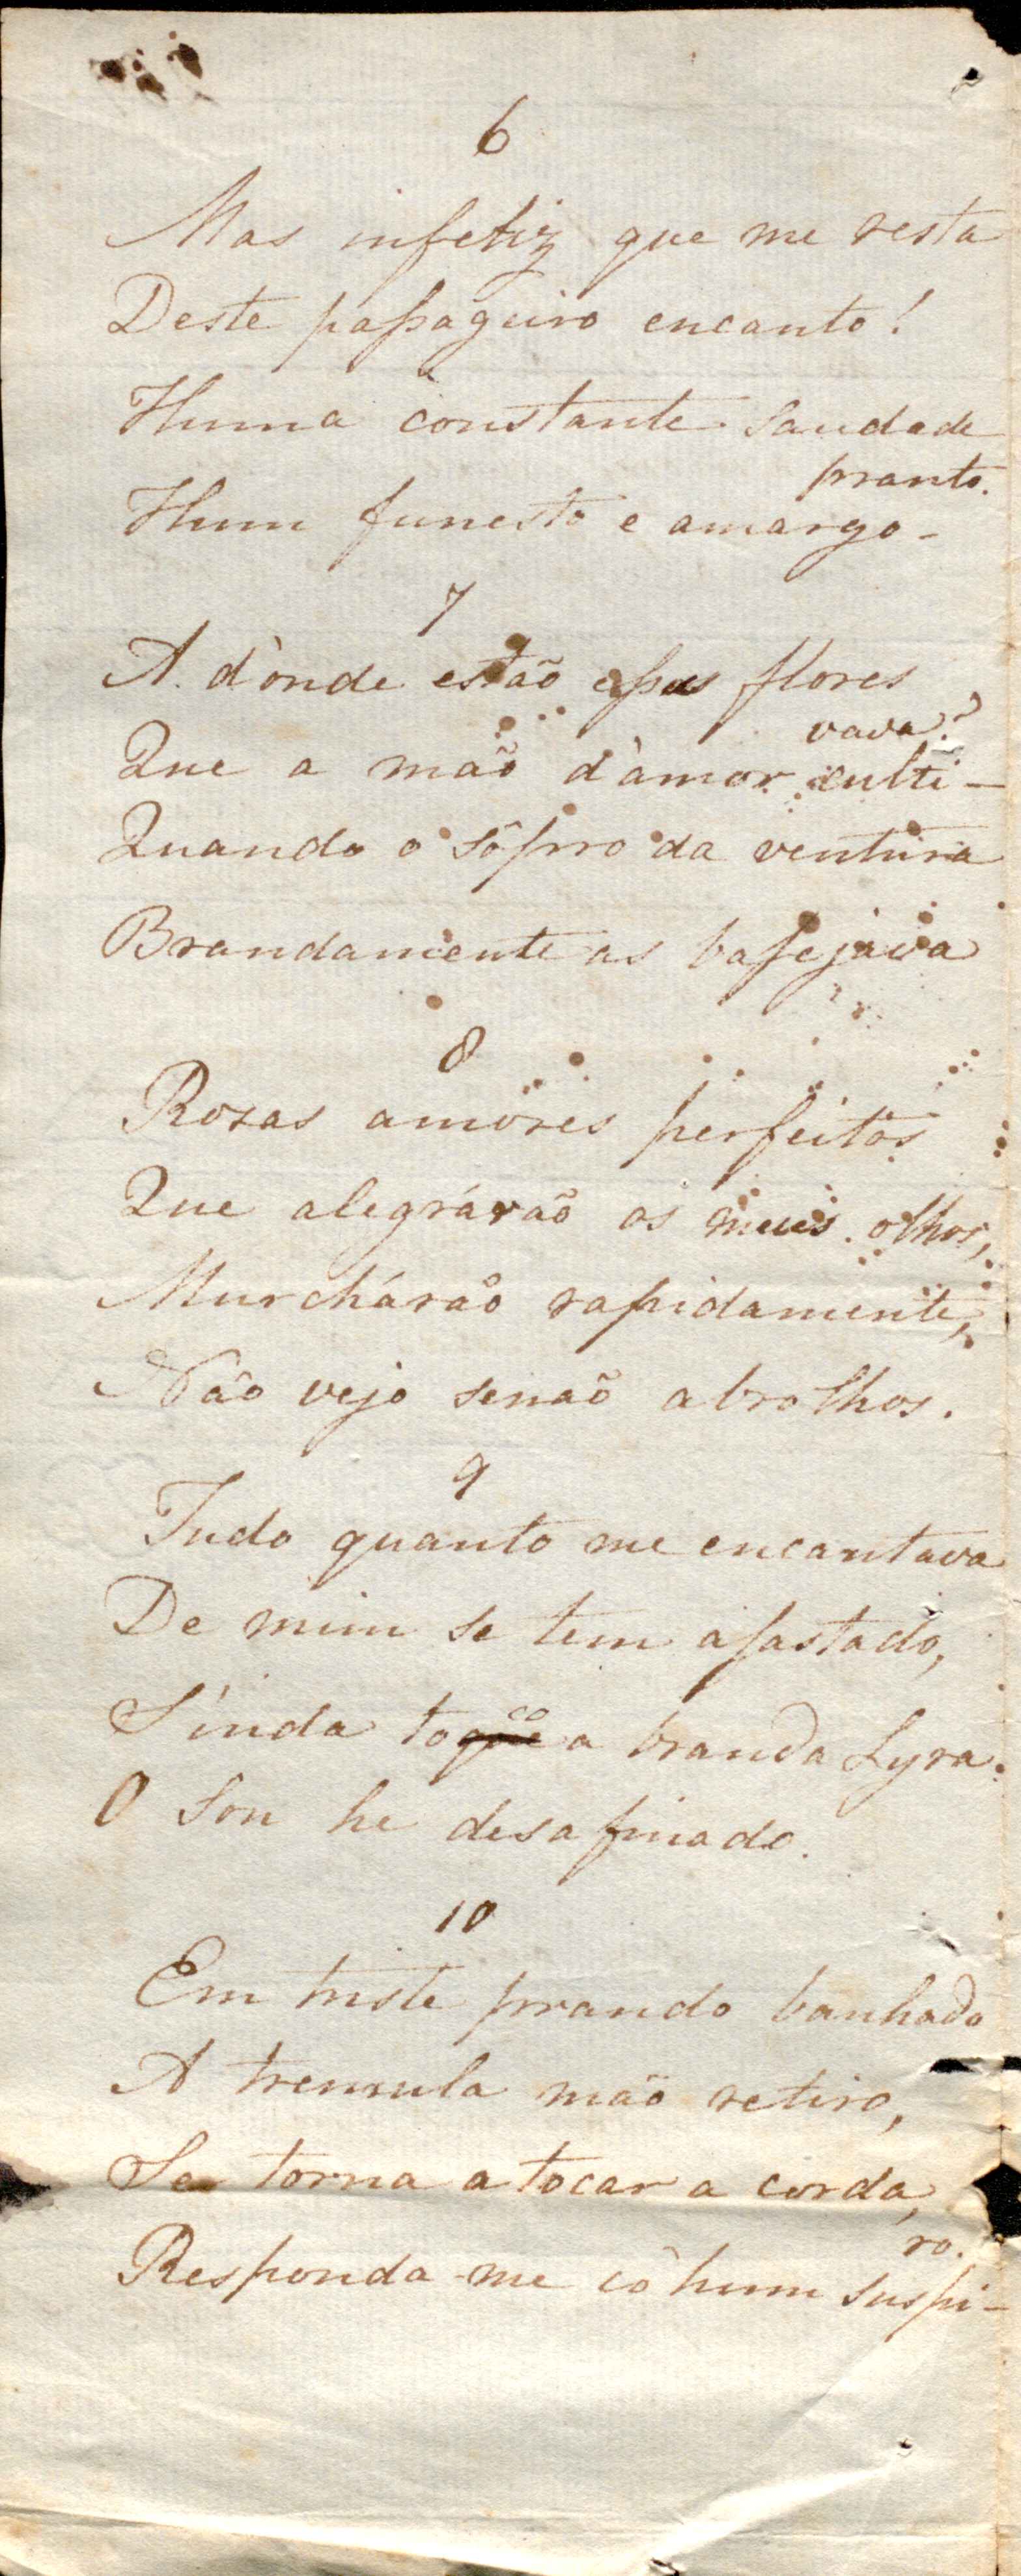 6
Mas infeliz que me resta
Deste passageiro encanto!
Huma constante saudade
Hum funesto e amargo-
pranto.
7
A. d'onde estão essas flores
Que a mão d'amor culti-
vava?
Quando o sôpro da ventura
Brandamente as bafejava
8
Rozas amores perfeitos
Que alegrárão os meus olhos,
Murchárão rapidamente,
Não vejo senão abrolhos.
9
Tudo quanto me encantava
De mim se tem afastado,
S'inda toco a branda Lyra.
O Son he desafinado.
10
Em triste prando banhado
A tremula mão retiro,
Se torna a tocar a corda,
Responda-me cò hum suspi-
ro.